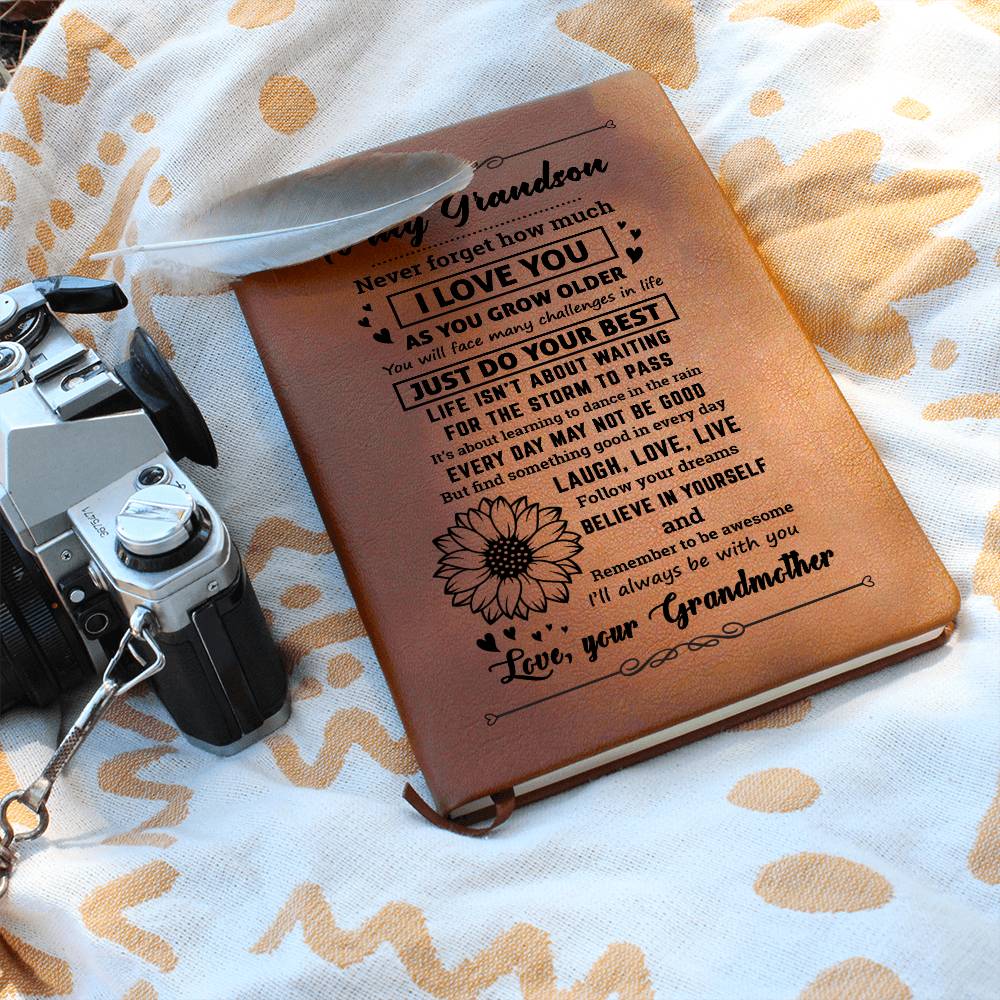 To my Grandson
Never forget how much
I LOVE YOU
AS YOU GROW OLDER
You will face many challenges in life
JUST DO YOUR BEST
LIFE ISN'T ABOUT WAITING
FOR THE STORM TO PASS
It's about learning to dance in the rain
EVERY DAY MAY NOT BE GOOD
But find something good in every day
LAUGH, LOVE, LIVE
Follow your dreams
BELIEVE IN YOURSELF
and
Remember to be awesome
I'll always be with you
Love, your Grandmother
367547A